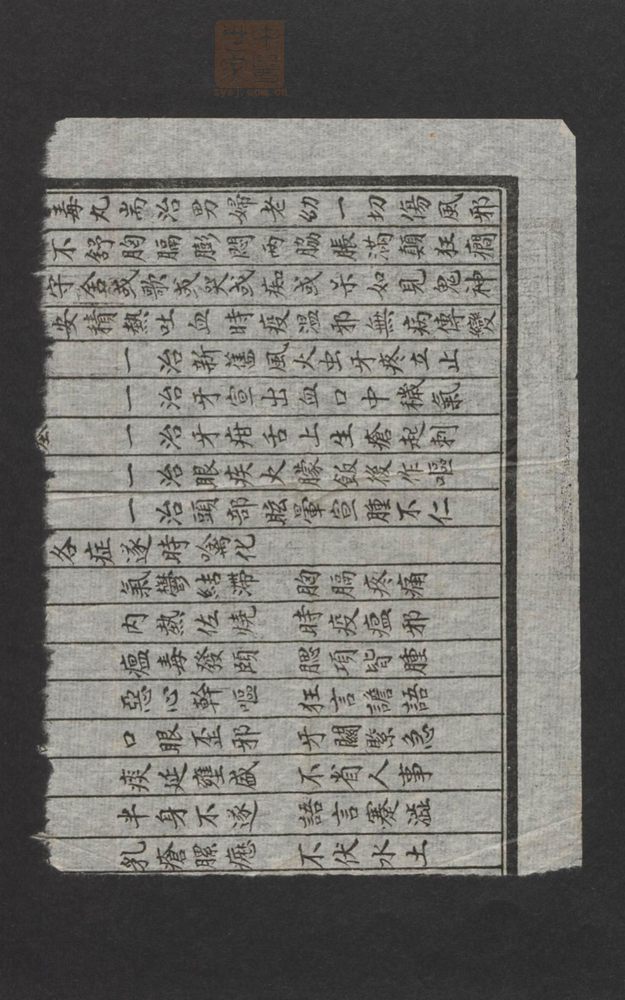 中醫世家
zysj.com.cn
毒丸耑治男婦老幼一切傷風邪
不舒胸膈膨悶兩脇脹滿顛狂癇
守舍或歌或哭或痴或呆如見鬼神
安積熱吐血時疫溫邪無病傳變
一治新舊風火虫牙疼立止
一治牙宣出血口中穢氣
一治牙疳舌上生瘡起刺
一治眼疾火朦飯後作嘔
一治頭部眩暈宣腫不仁
各症遂時噙化
氣鬱結滯 胸膈疼痛
内熱佐燒 時疫瘟邪
瘟毒發頤 腮項皆腫
惡心幹嘔 狂言譫語
口眼歪邪 牙關緊急
痰延壅盛 不省人事
半身不遂 語言蹇澁
乳瘡癧 不伏水土